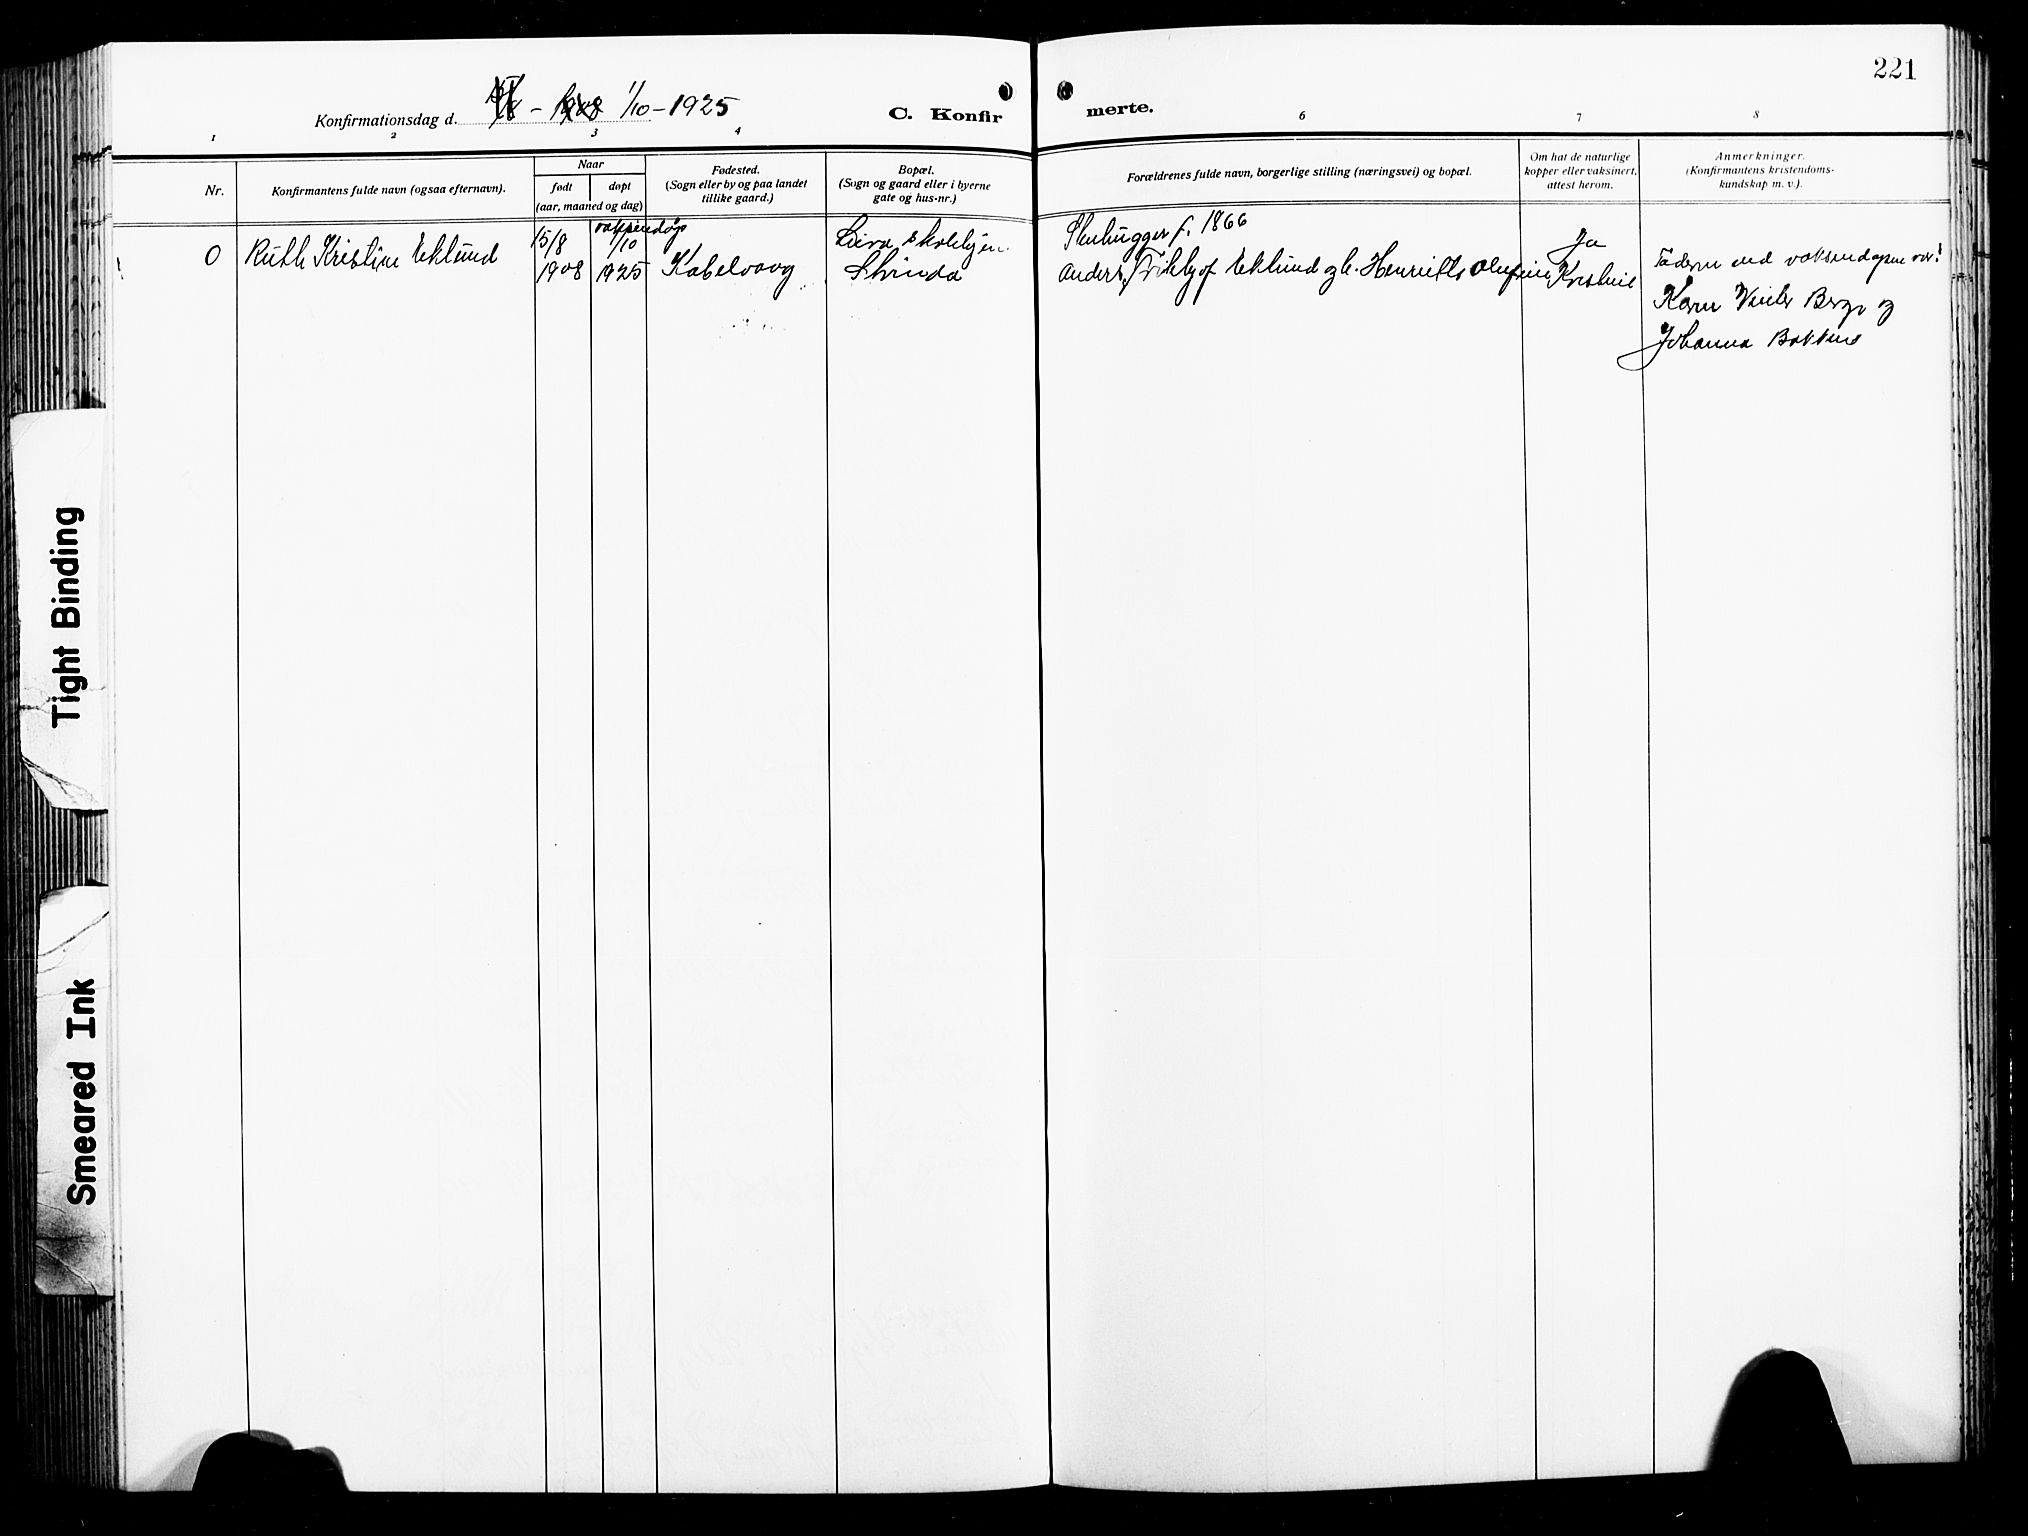 221
Konfirmationsdag d. 1/10 - 1925
C. Konfirmerte.
1 2 3 4 6 7 8
Nr.
Konfirmantens fulde navn (ogsaa efternavn).
Naar
født
døpt
(aar, maaned og dag)
Fødested.
(Sogn eller by og paa landet
tillike gaard.)
Bopæl.
(Sogn og gaard eller i byerne
gate og hus-nr.)
Forældrenes fulde navn, borgerlige stilling (næringsvei) og bopæl.
Om hat de naturlige
kopper eller vaksinert,
attest herom.
Anmerkninger.
(Konfirmantens kristendoms-
kundskap m. v.).
0
Ruth Kristine Eklund
15/8
1908
1/10
1925
Kabelvaag
Leira skolehjem
Strinda
Stenhugger f. 1866
Anders Frithjof Eklund og h. Henriette Olufine Kristine
Ja
Faddere ved voksendaapen var:
Karen Berge og
Johanna Bakken
Tight Binding
Smeared Ink